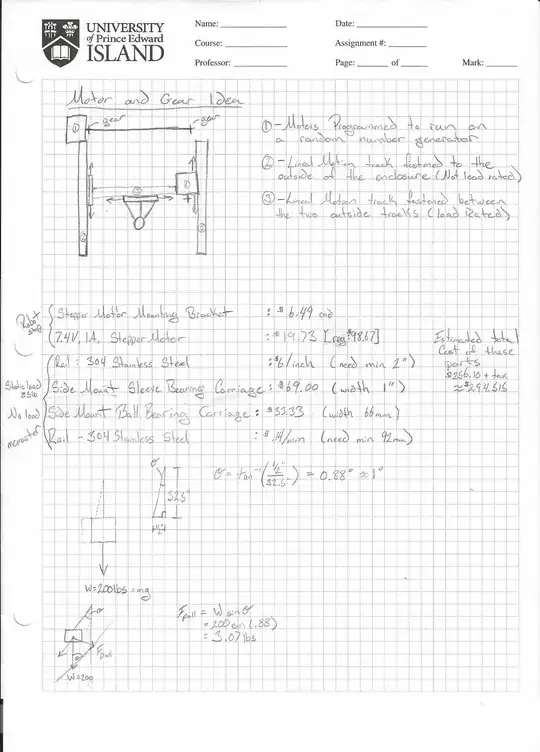 UNIVERSITY
of Prince Edward
ISLAND
Name:
Date:
Course:
Assignment #:
Professor:
Page: of
Mark:
Motor and Gear Idea
gear
gear
① - Motors Programmed to run on
a random number generator
② - Lineal Motion track fastened to the
outside of the enclosure (Not load rated)
③ - Lineal Motion track fastened between
the two outside tracks (load Rated)
①
①
③
②
②
Robot
shop
Stepper Motor Mounting Bracket : $6.49 cad
7.4V, 1A, Stepper Motor : $19.73 [reg $98.67]
Rail : 304 Stainless Steel : $6/inch (need min 2")
Static load
Side Mount Sleeve Bearing Carriage : $69.00 (width 1")
No load
Side Mount Ball Bearing Carriage : $33.33 (width 66mm)
mcmaster
Rail - 304 Stainless Steel : $.14/mm (need min 92mm)
Estimated total
cost of these
parts
$256.10 + tax
≈ $294.515
θ
32.5"
1/2"
θ = tan⁻¹(1/2"/32.5") = 0.88° ≈ 1°
W=200lbs = mg
F pull = W sin θ
= 200 sin (.88)
= 3.07 lbs
θ
F pull
θ
W=200